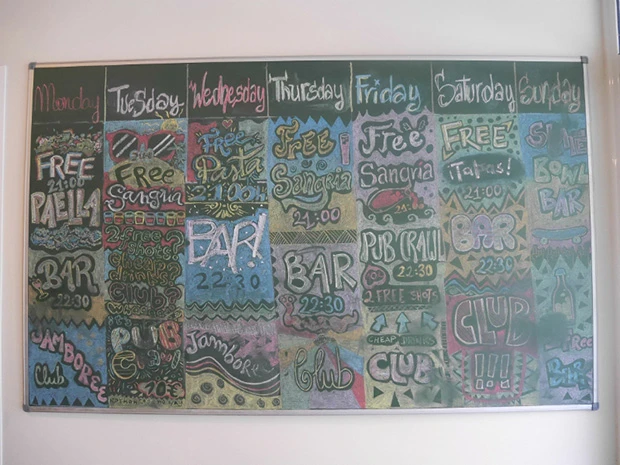 Monday
FREE
21:00
PAELLA
BAR
22:30
JAMBOREE
Club
TUESday
FREE
Sangria
PUB
Wednesday
Free
Pasta
21:00
BAR!
22:30
Jamboree
Thursday
FREE
Sangria
21:00
BAR
22:30
Club
Friday
Free
Sangria
21:00
PUB CRAWL
22:30
2 FREE SHOTS
CHEAP DRINKS
CLUB
SatuRday
FREE
¡Tapas!
21:00
BAR
22:30
CLUB
!!!
Sunday
BOWL
BAR
BAR